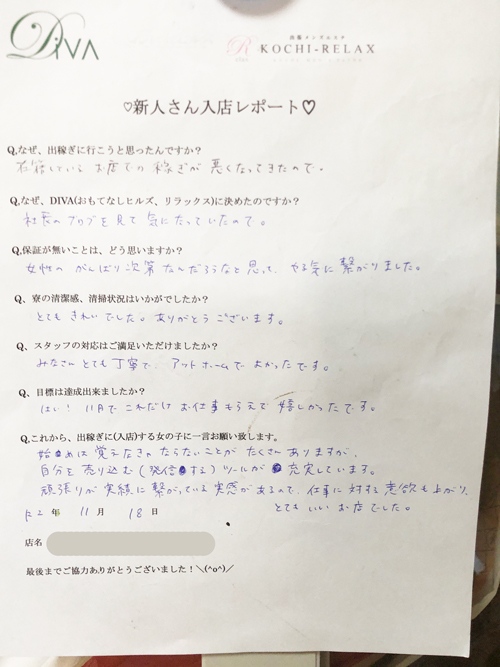 DIVA
出張メンズエステ
R KOCHI-RELAX
♡新人さん入店レポート♡
Q,なぜ、出稼ぎに行こうと思ったんですか?
在籍している お店での 稼ぎが 悪くなってきたので。
Q,なぜ、DIVA(おもてなしヒルズ、リラックス)に決めたのですか?
社長の ブログを 見て 気になっていたので。
Q,保証が無いことは、どう思いますか?
女性の がんばり次第なんだろうなと 思って、やる気に 繋がりました。
Q、寮の清潔感、清掃状況はいかがでしたか?
とても きれいでした。ありがとう ございます。
Q、スタッフの対応はご満足いただけましたか?
みなさん とても 丁寧で アットホームで よかったです。
Q、目標は達成出来ましたか?
はい! 11月で これだけ お仕事もらえて 嬉しかったです。
Q,これから、出稼ぎに(入店)する女の子に一言お願い致します。
始めは 覚えなきゃ ならないことが たくさん ありますが、
自分を 売り込む(発信する)ツールが 充実しています。
頑張りが 実績に 繋がっている 実感が あるので、仕事に 対する 意欲も上がり、
とても いい お店でした。
R2 年 11 月 18 日
店名
最後までご協力ありがとうございました!＼(^o^)／